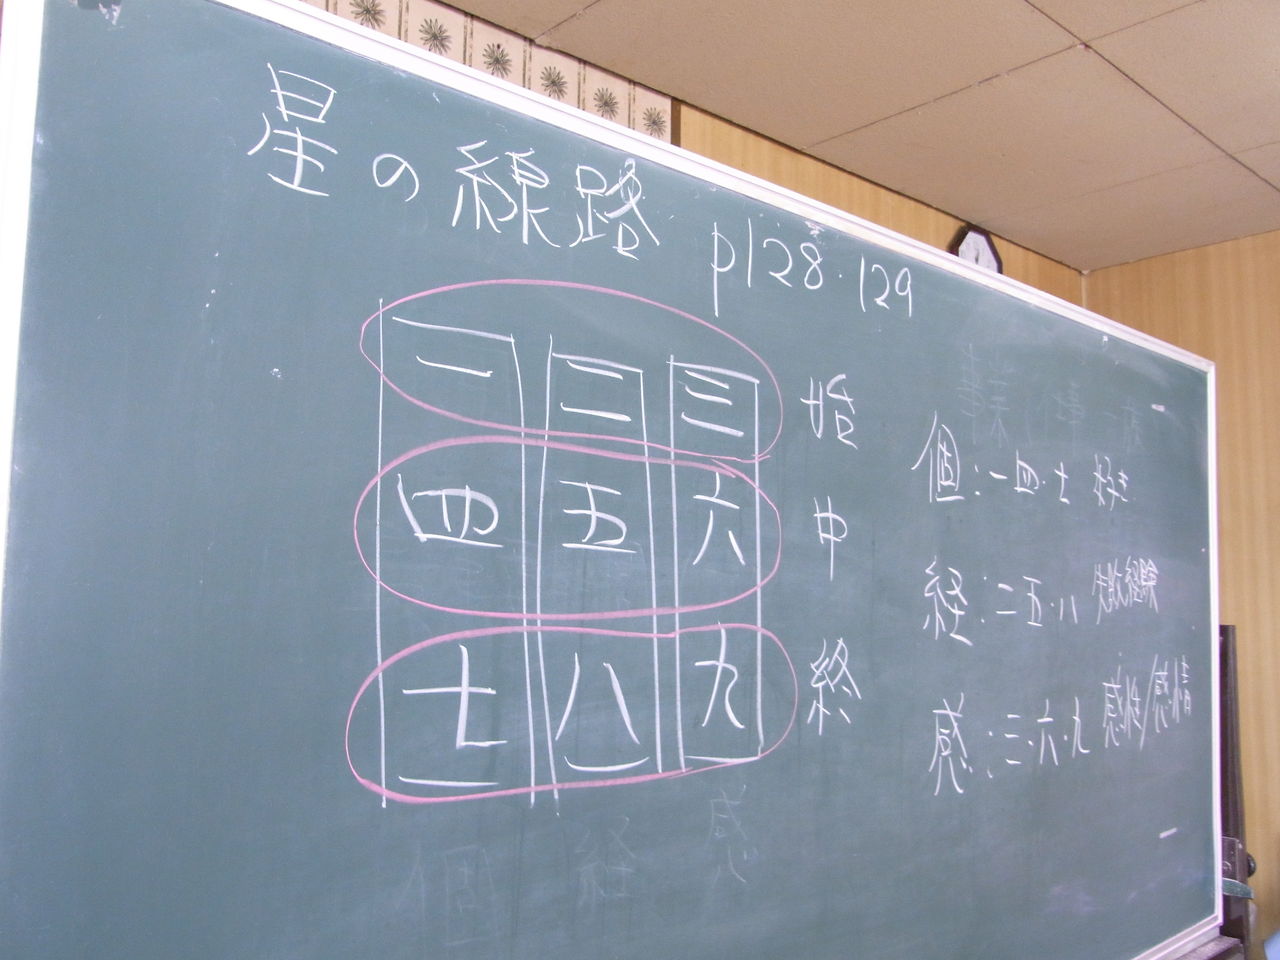 星の線路 p128・129
一 二 三 始
四 五 六 中
七 八 九 終
個:一・四・七 好き
経:二・五・八 失敗経験
感:三・六・九 感性/感情
個 経 感